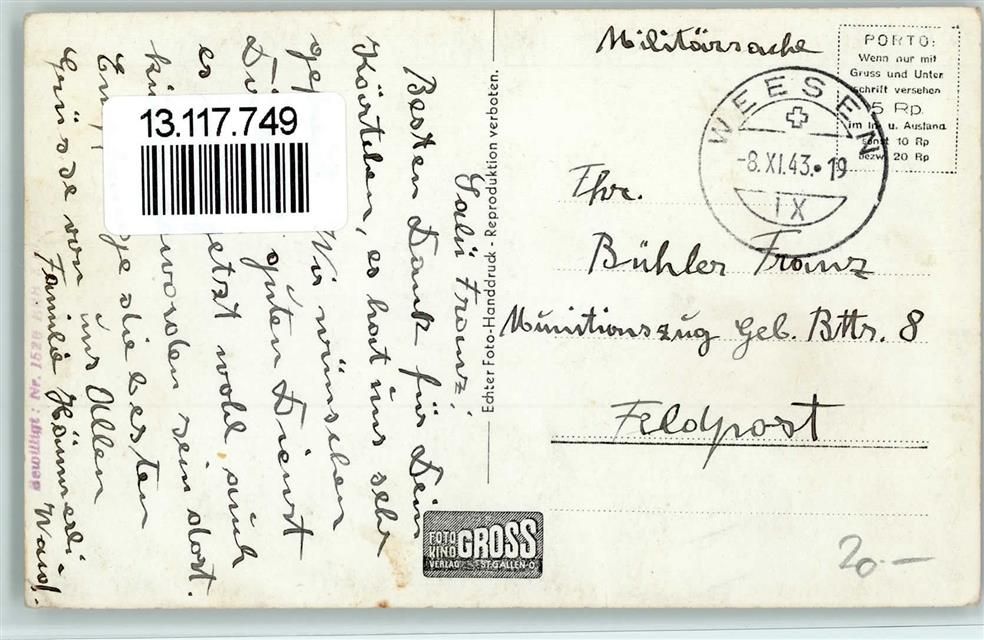 Militärsache
PORTO:
Wenn nur mit
Gruss und Unter
schrift versehen
5 Rp.
im In. u. Ausland
sonst 10 Rp
bezw. 20 Rp
WEESEN
-8.XI.43.-19
IX
Fhr.
Bühler Franz
Munitionszug Geb. Bttr. 8
Feldpost
20.-
Echter Foto-Handdruck - Reproduktion verboten.
FOTO
KINO
GROSS
VERLAG ST.GALLEN-O
13.117.749
Salü Franz!
Besten Dank für Dein
Kärtchen, es hat uns sehr
gef Wir wünschen
guten Dienst
es jetzt wohl auch
worden sein dort.
die besten
Grüsse von uns Allen
Familie
Bewilligt: Nr. 1526